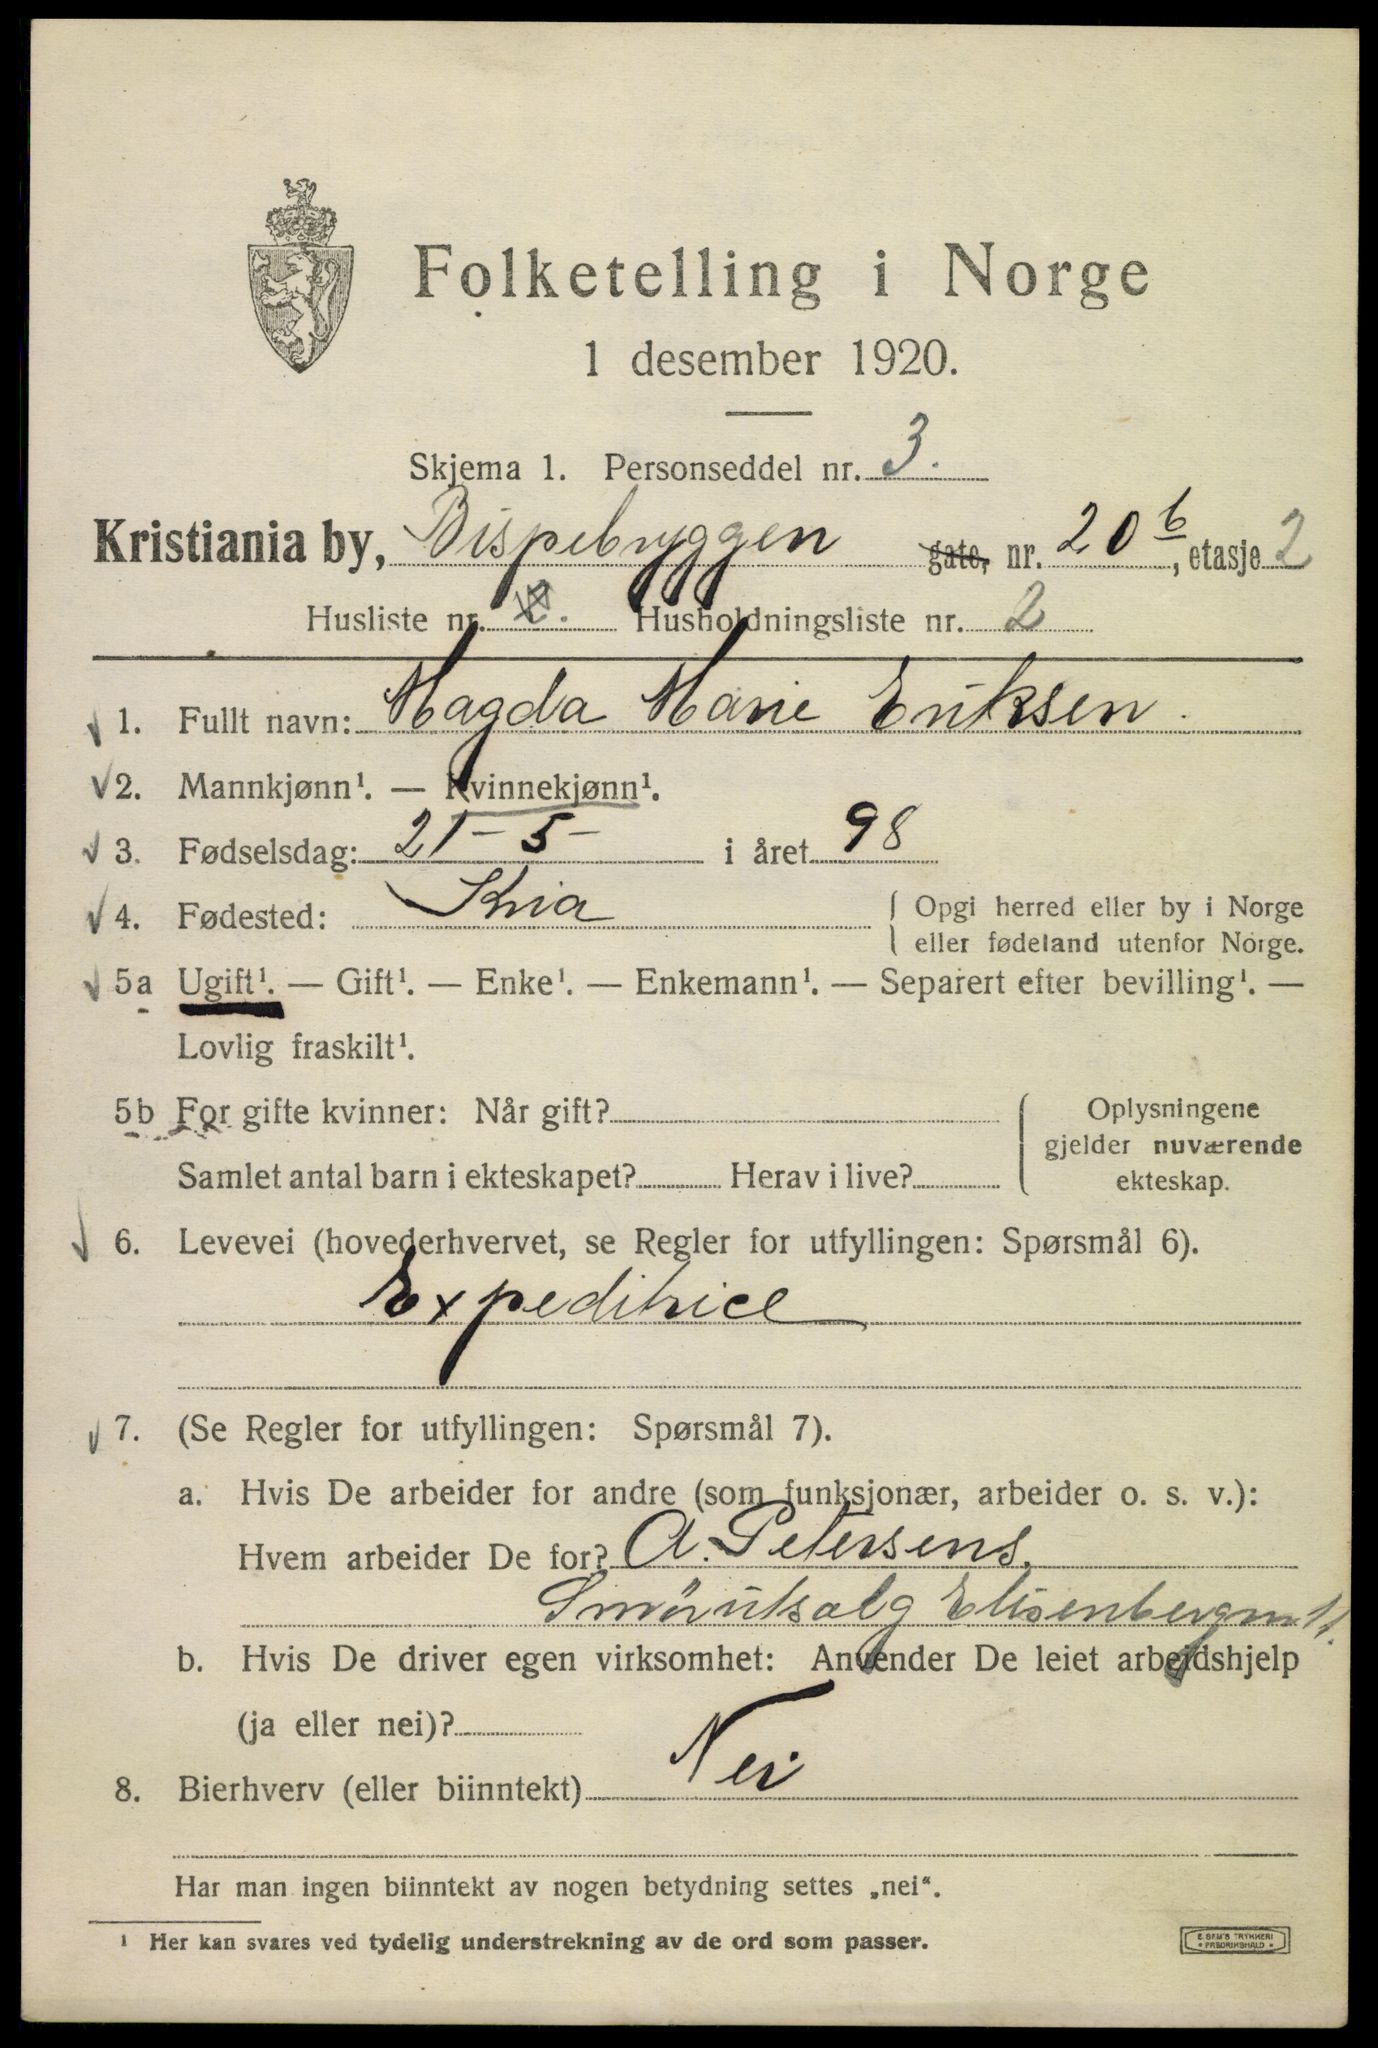 Folketelling i Norge
1 desember 1920.
Skjema 1. Personseddel nr. 3.
Kristiania by, Bispebryggen gate, nr. 20 b, etasje 2
Husliste nr. Husholdningsliste nr. 2
1. Fullt navn: Magda Marie Eriksen.
2. Mannkjønn¹. — Kvinnekjønn¹.
3. Fødselsdag: 21 - 5 - i året 98
4. Fødested: Kria { Opgi herred eller by i Norge
eller fødeland utenfor Norge.
5a Ugift¹. — Gift¹. — Enke¹. — Enkemann¹. — Separert efter bevilling¹. —
Lovlig fraskilt¹.
5b For gifte kvinner: Når gift? Oplysningene
gjelder nuværende
Samlet antal barn i ekteskapet? Herav i live? ekteskap.
6. Levevei (hovederhvervet, se Regler for utfyllingen: Spørsmål 6).
Expeditrice
7. (Se Regler for utfyllingen: Spørsmål 7).
a. Hvis De arbeider for andre (som funksjonær, arbeider o. s. v.):
Hvem arbeider De for? A. Petersens.
Smørutsalg Elisenbergm 11.
b. Hvis De driver egen virksomhet: Anvender De leiet arbeidshjelp
(ja eller nei)?
8. Bierhverv (eller biinntekt) Nei
Har man ingen biinntekt av nogen betydning settes „nei“.
¹ Her kan svares ved tydelig understrekning av de ord som passer.
E. SEM'S TRYKKERI
• FREDRIKSHALD •